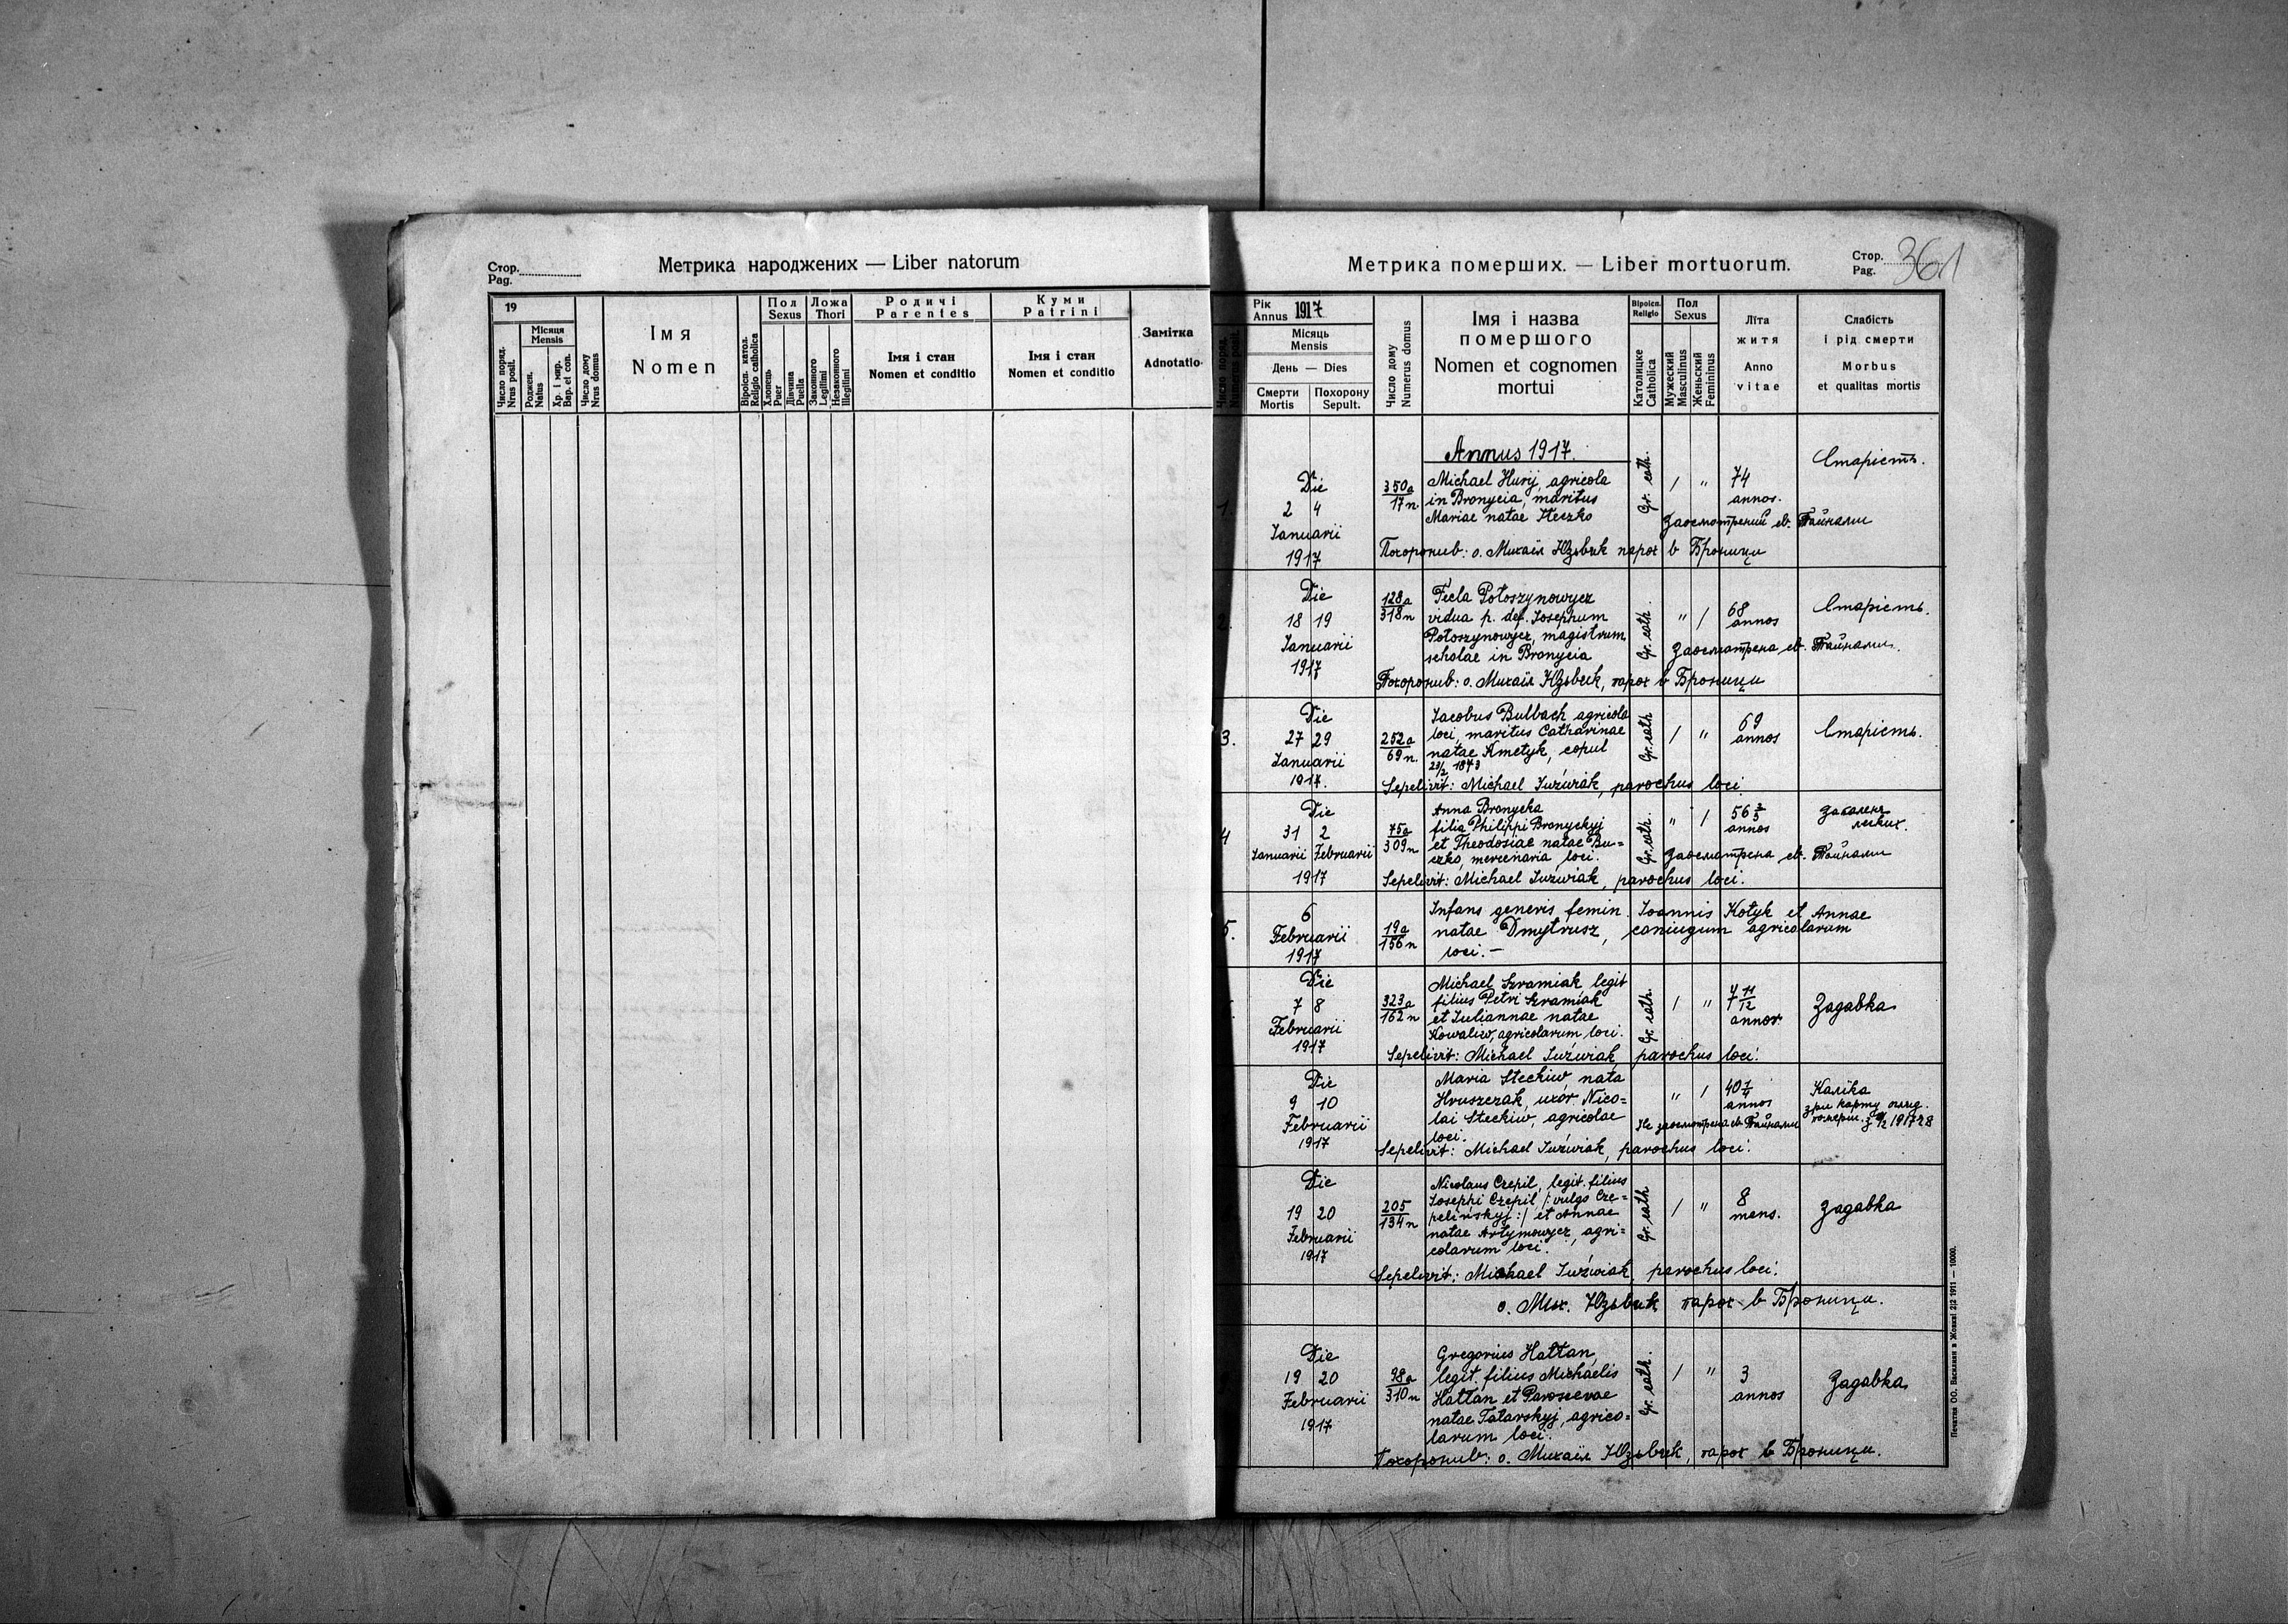 Стор.
Pag.
Метрика народжених — Liber natorum
19
Число поряд.
Nrus posit.
Місяця
Mensis
Рожден.
Natus
Хр. і мир.
Bap. et con.
Число дому
Nrus domus
Імя
Nomen
Віроісп. катол.
Religio catholica
Пол
Sexus
Хлопець
Puer
Дівчина
Puella
Ложа
Thori
Законного
Legitimi
Незаконного
Illegitimi
Родичі
Parentes
Імя і стан
Nomen et conditio
Куми
Patrini
Імя і стан
Nomen et conditio
Замітка
Adnotatio
Метрика померших. — Liber mortuorum.
Стор.
Pag.
361
Число поряд.
Numerus posit.
Рік
Annus 1917
Місяць
Mensis
День — Dies
Смерти
Mortis
Похорону
Sepult.
Число дому
Numerus domus
Імя і назва
помершого
Nomen et cognomen
mortui
Віроісп.
Religio
Католицке
Catholica
Пол
Sexus
Мужеский
Masculinus
Женьский
Femininus
Літа
житя
Anno
vitae
Слабість
і рід смерти
Morbus
et qualitas mortis
Annus 1917.
1.
Die
2 4
Januarii
1917
350a
17n.
Michael Huzij, agricola
in Bronycia, maritus
Mariae natae Heczko
Gr. cath.
/ "
74
annos.
Старість.
Заосмотрений св. Тайнами
Похоронив: о. Михаіл Юзьвяк парох в Броници
2.
Die
18 19
Januarii
1917
128a
318n
Tecla Potoszynowycz
vidua p. def. Josephum
Potoszynowycz, magistrum
scholae in Bronycia
Gr. cath.
" /
68
annos
Старість.
Заосмотрена св. Тайнами.
Похоронив: о. Михаіл Юзьвяк, парох в Броници
3.
Die
27 29
Januarii
1917.
252a
69n.
Jacobus Bulbach agricola
loci, maritus Catharinae
natae Kmetyk, copul
23/2 1873
Gr. cath
/ "
69
annos
Старість.
Sepelivit: Michael Juźwiak, parochus loci.
4
Die
31 2
Januarii Februarii
1917
75a
309n
Anna Bronycka
filia Philippi Bronyckyj
et Theodosiae natae Bu-
czko, mercenaria loci.
Gr. cath.
" /
56
annos
легких.
Заосмотрена св. Тайнами
Sepelivit: Michael Juźwiak, parochus loci.
5.
6
Februarii
1917
19a
156n
Infans generis femin. Joannis Kotyk et Annae
natae Dmytrusz, coniugum agricolarum
loci.—
Die
7 8
Februarii
1917
323a
162n
Michael Szramiak legit
filius Petri Szramiak
et Juliannae natae
Kowaliw, agricolarum loci.
Gr. cath.
/ "
7 11/12
annor.
Задавка
Sepelivit: Michael Juźwiak parochus loci.
Die
9 10
Februarii
1917
Maria Steckiw, nata
Hruszczak, uxor Nico-
lai Steckiw, agricolae
loci.
" /
annos
Каліка
зри карту огляд.
померш.
Не заосмотрена св. Тайнами
Sepelivit: Michael Juźwiak, parochus loci.
Die
19 20
Februarii
1917
205
134n
Nicolaus Czepil, legit. filius
Josephi Czepil /: vulgo Cze-
pelinskyj :/ et Annae
natae Artymowycz, agri-
colarum loci.
Gr. cath
/ "
8
mens.
Задавка
Sepelivit: Michael Juźwiak, parochus loci.
о. Мих. Юзьвяк парох в Броници.
Die
19 20
Februarii
1917
98a
310n
Gregorius Hattan,
legit. filius Michaelis
Hattan et Parascevae
natae Tatarskyj, agrico-
larum loci.
Gr. cath.
/ "
3
annos
Задавка
Похоронив: о. Михаіл Юзьвяк, парох в Броници.
Печатня ОО. Василиян в Жовкві 2|2 1911 — 10000.